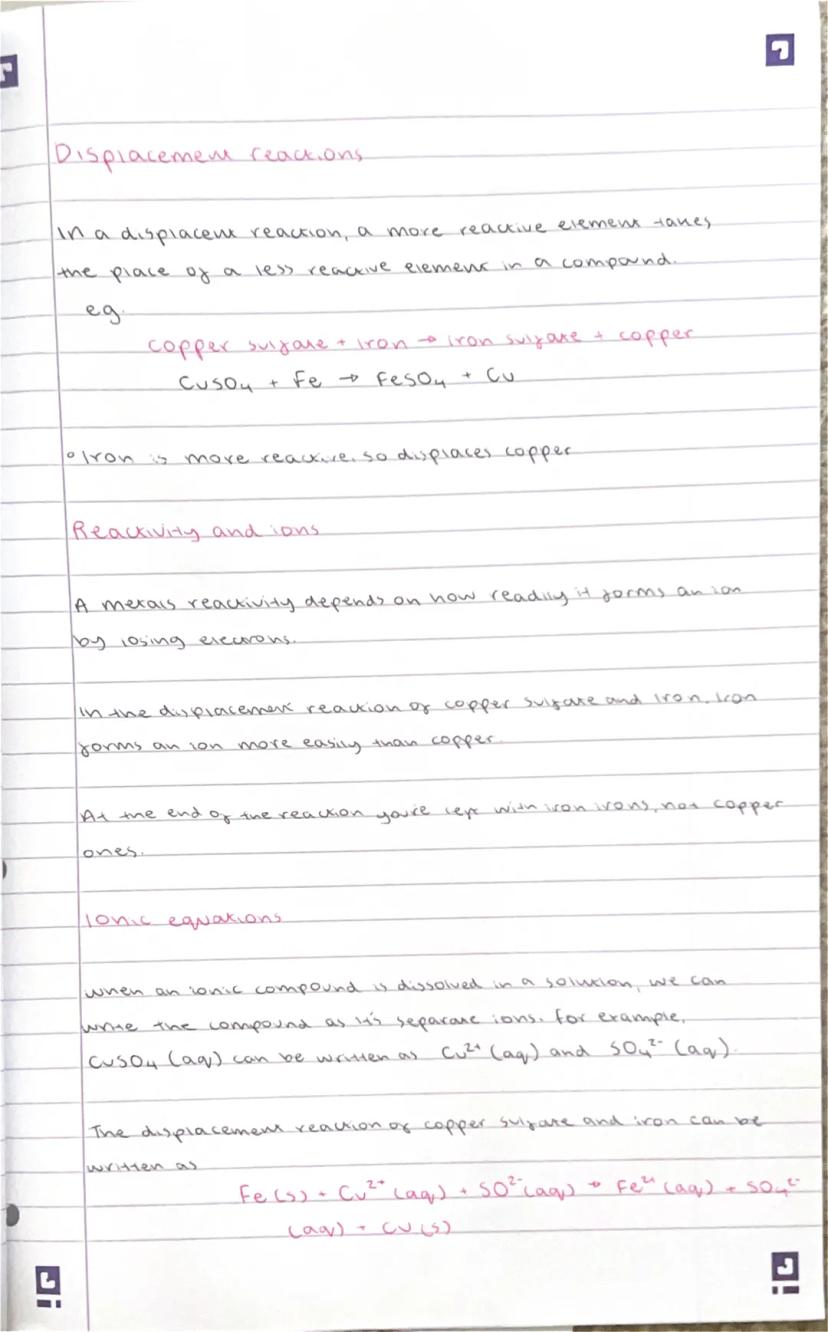 Displacement reactions
In a displacent reaction, a more reactive element takes
the place of a less reactive element in a compound.
eg.
copper sulfate + iron → iron sulfate + copper
CuSO₄ + Fe → FeSO₄ + Cu
° Iron is more reactive, so displaces copper
Reactivity and ions
A metals reactivity depends on how readily it forms an ion
by losing electrons.
In the displacement reaction of copper sulfate and iron, iron
forms an ion more easily than copper.
At the end of the reaction you're left with iron irons, not copper
ones.
Ionic equations
When an ionic compound is dissolved in a solution, we can
write the compound as it's separate ions. For example,
CuSO₄ (aq) can be written as Cu²⁺ (aq) and SO₄²⁻ (aq).
The displacement reaction of copper sulfate and iron can be
written as
Fe (s) + Cu²⁺ (aq) + SO²⁻ (aq) → Fe²⁺ (aq) + SO₄²⁻
(aq) + Cu (s)